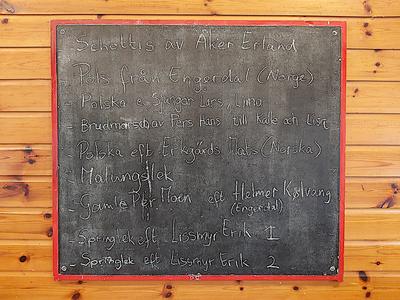 - Schottis av Åker Erland
- Pols från Engerdal (Norge)
- Polska e Spangar Lars, Lima
- Brudmarsch av Pers Hans till Kalle och Lisa
- Polska eft Erkgärds Mats (Norska)
- Malungslek
- Gamle Per Moen eft Helmer Kolvang
(Engerdal)
- Springlek eft Lissmyr Erik 1
- Springlek eft Lissmyr Erik 2